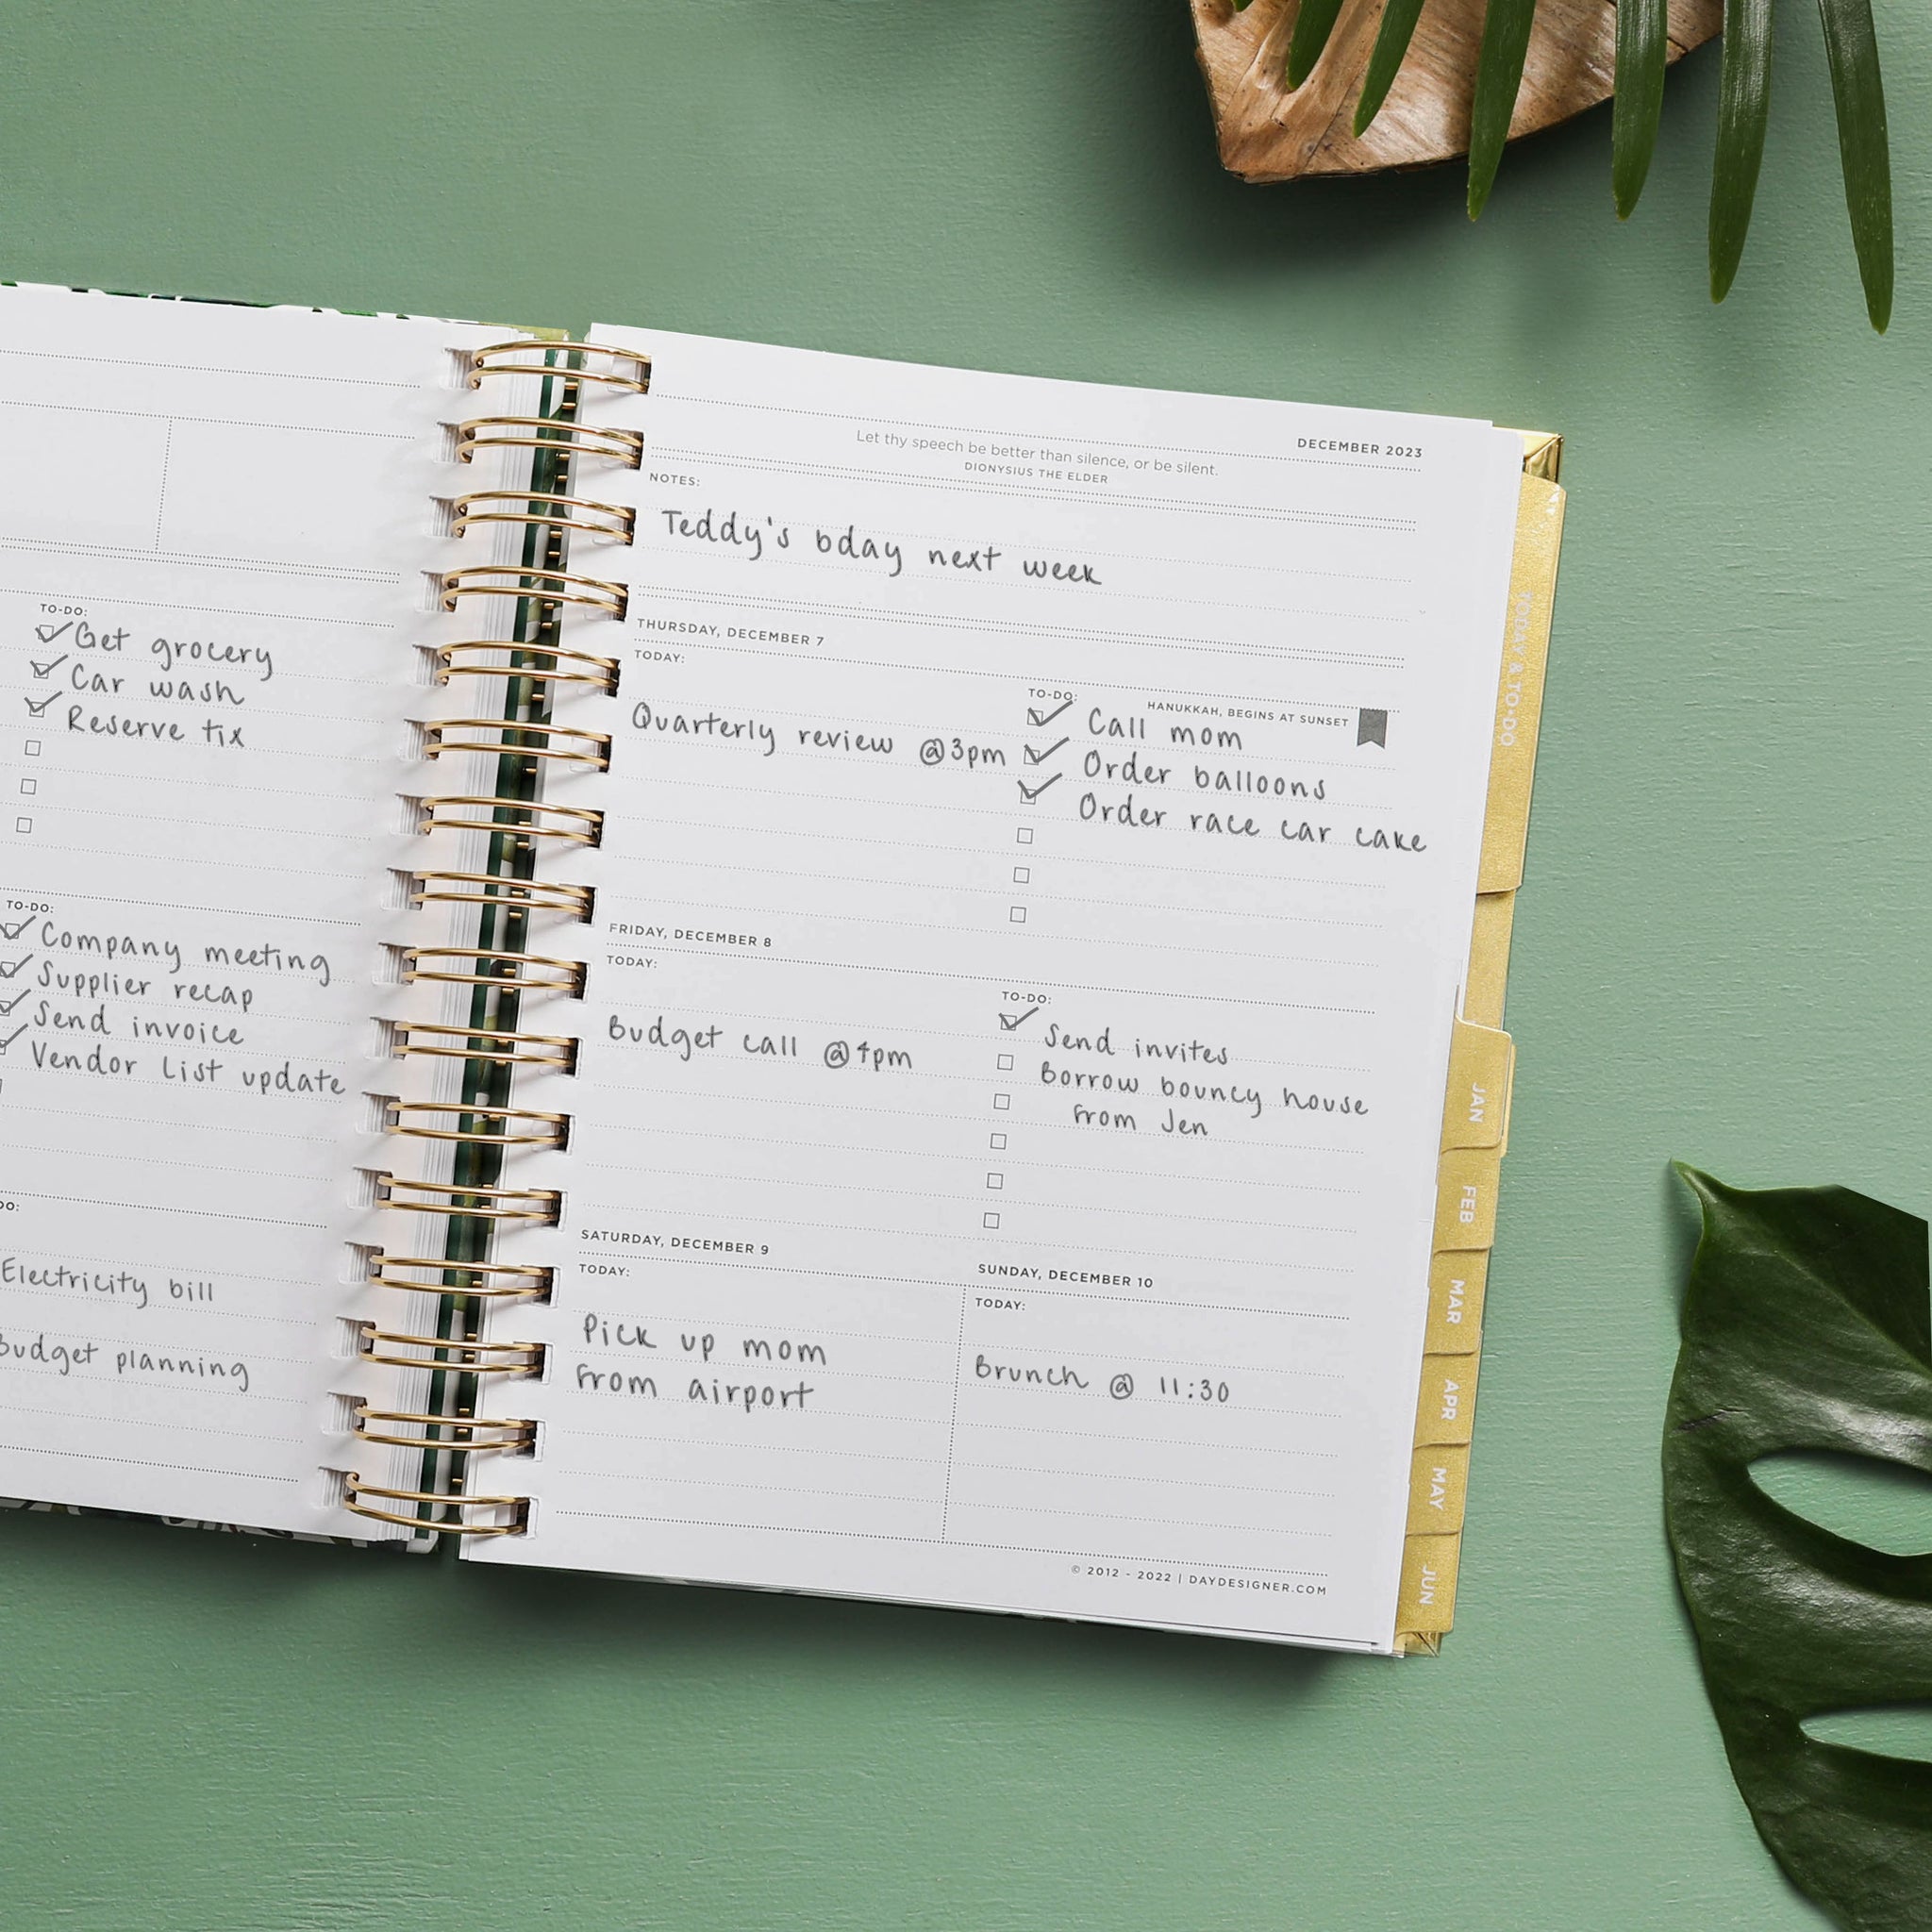 TO-DO:
Get grocery
Car wash
Reserve tix
TO-DO:
Company meeting
Supplier recap
Send invoice
Vendor List update
DO:
Electricity bill
Budget planning
DECEMBER 2023
Let thy speech be better than silence, or be silent.
DIONYSIUS THE ELDER
NOTES:
Teddy's bday next week
THURSDAY, DECEMBER 7
TODAY:
Quarterly review @3pm
TO-DO:
HANUKKAH, BEGINS AT SUNSET
Call mom
Order balloons
Order race car cake
FRIDAY, DECEMBER 8
TODAY:
Budget call @4pm
TO-DO:
Send invites
Borrow bouncy house
from Jen
SATURDAY, DECEMBER 9
TODAY:
Pick up mom
from airport
SUNDAY, DECEMBER 10
TODAY:
Brunch @ 11:30
© 2012 - 2022 | DAYDESIGNER.COM
TODAY & TO-DO
JAN
FEB
MAR
APR
MAY
JUN